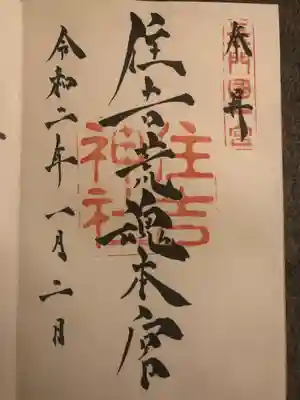 奉拝
長門國一宮
住吉荒魂本宮
住吉神社
令和二年一月二日